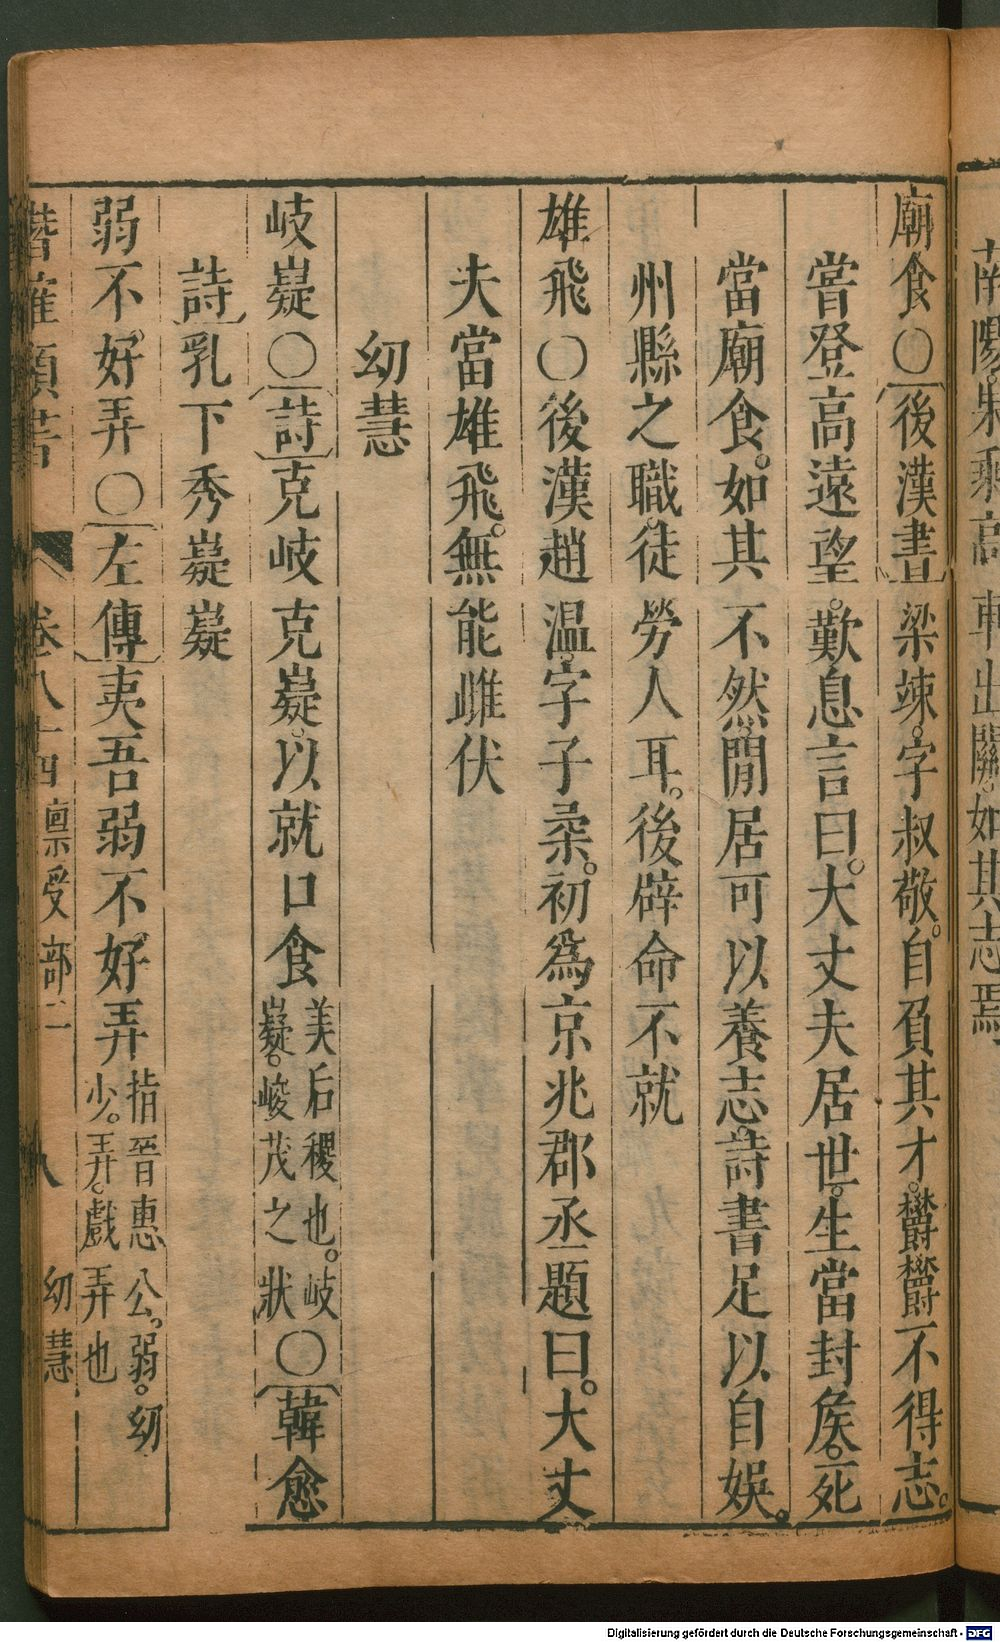 南陽。果乘高車出關。如其志焉
廟食〇後漢書梁竦。字叔敬。自負其才。鬱鬱不得志。
嘗登高遠望。歎息言曰。大丈夫居世。生當封矦。死
當廟食。如其不然。閒居可以養志。詩書足以自娛。
州縣之職。徒勞人耳。後辟命不就
雄飛〇後漢趙溫。字子柔。初爲京兆郡丞。題曰。大丈
夫當雄飛。無能雌伏
幼慧
岐嶷〇詩克岐克嶷。以就口食美后稷也。岐嶷。峻茂之狀〇韓愈
詩乳下秀嶷嶷
弱不好弄〇左傳夷吾弱不好弄指晉惠公。弱。幼少。弄。戲弄也
潛確類書 卷八十四稟受部二 八 幼慧
Digitalisierung gefördert durch die Deutsche Forschungsgemeinschaft - DFG